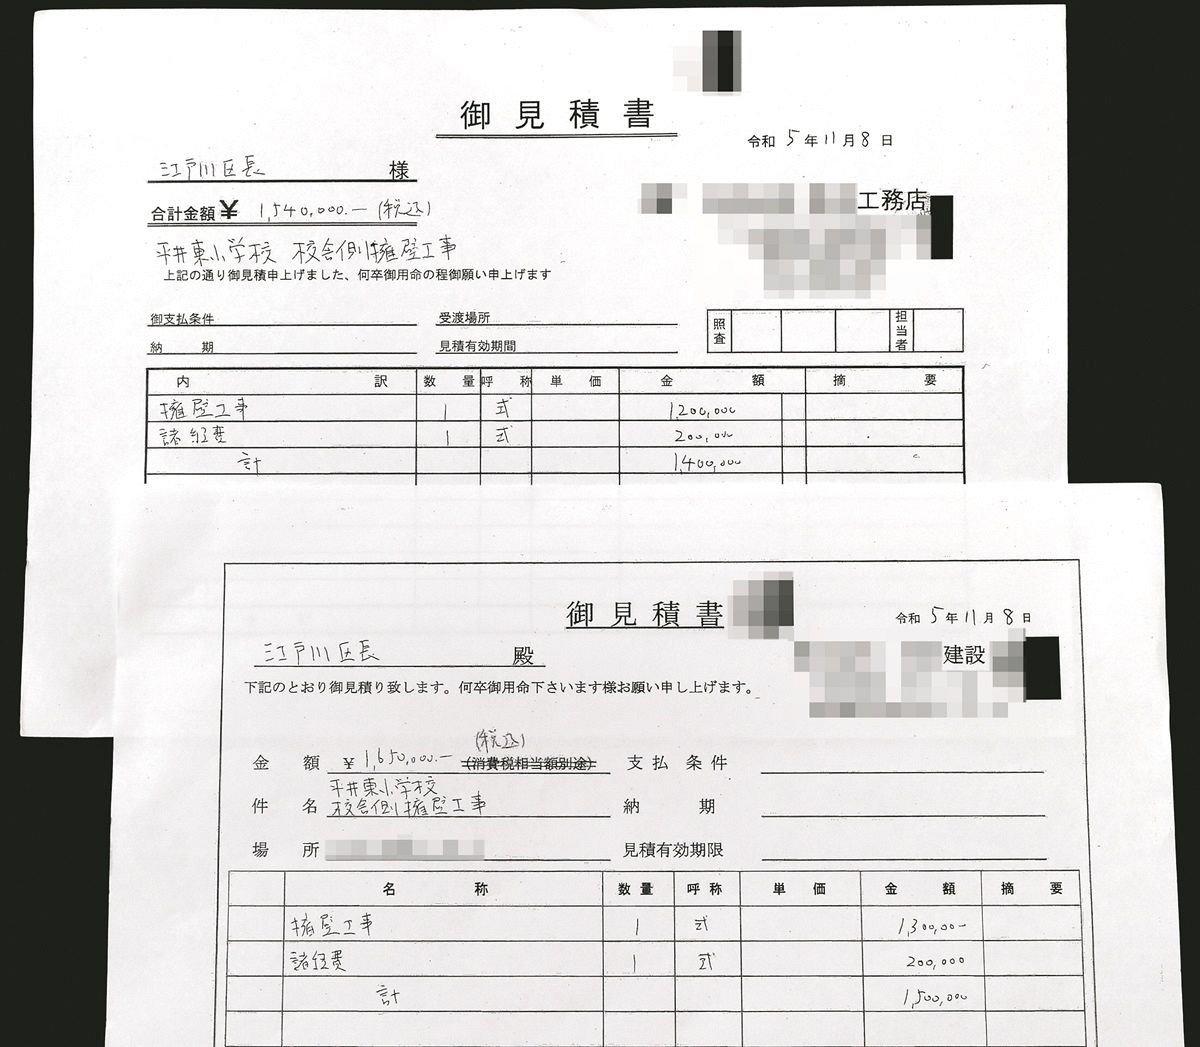 御見積書
令和 5年 11月 8日
江戸川区長 様
工務店
合計金額 ¥ 1,540,000.ー (税込)
平井東小学校 校舎側擁壁工事
上記の通り御見積申上げました、何卒御用命の程御願い申上げます
御支払条件 受渡場所
納期 見積有効期間
照査 担当者
内訳 数量 呼称 単価 金額 摘要
擁壁工事 1 式 1,200,000
諸経費 1 式 200,000
計 1,400,000
御見積書
令和 5年 11月 8日
江戸川区長 殿
建設
下記のとおり御見積り致します。何卒御用命下さいます様お願い申し上げます。
(税込)
金額 ¥ 1,650,000.ー (消費税相当額別途) 支払条件
平井東小学校
件名 校舎側擁壁工事 納期
場所 見積有効期限
名称 数量 呼称 単価 金額 摘要
擁壁工事 1 式 1,300,000
諸経費 1 式 200,000
計 1,500,000